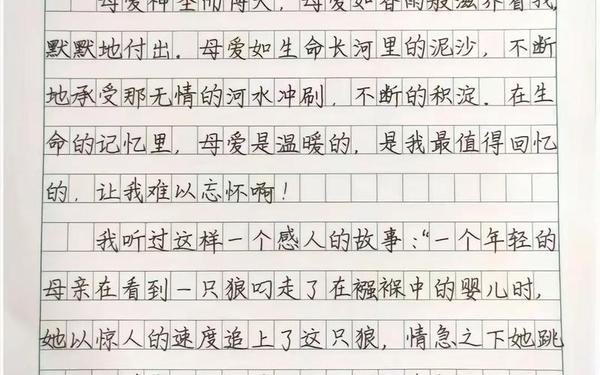 母爱神圣而博大，母爱如春雨般滋养着我，
默默地付出．母爱如生命长河里的泥沙，不断
地承受那无情的河水冲刷，不断的积淀．在生
命的记忆里，母爱是温暖的，是我最值得回忆
的，让我难以忘怀啊！
我听过这样一个感人的故事：“一个年轻的
母亲在看到一只狼叼走了在襁褓中的婴儿时，
她以惊人的速度追上了这只狼，情急之下她跳